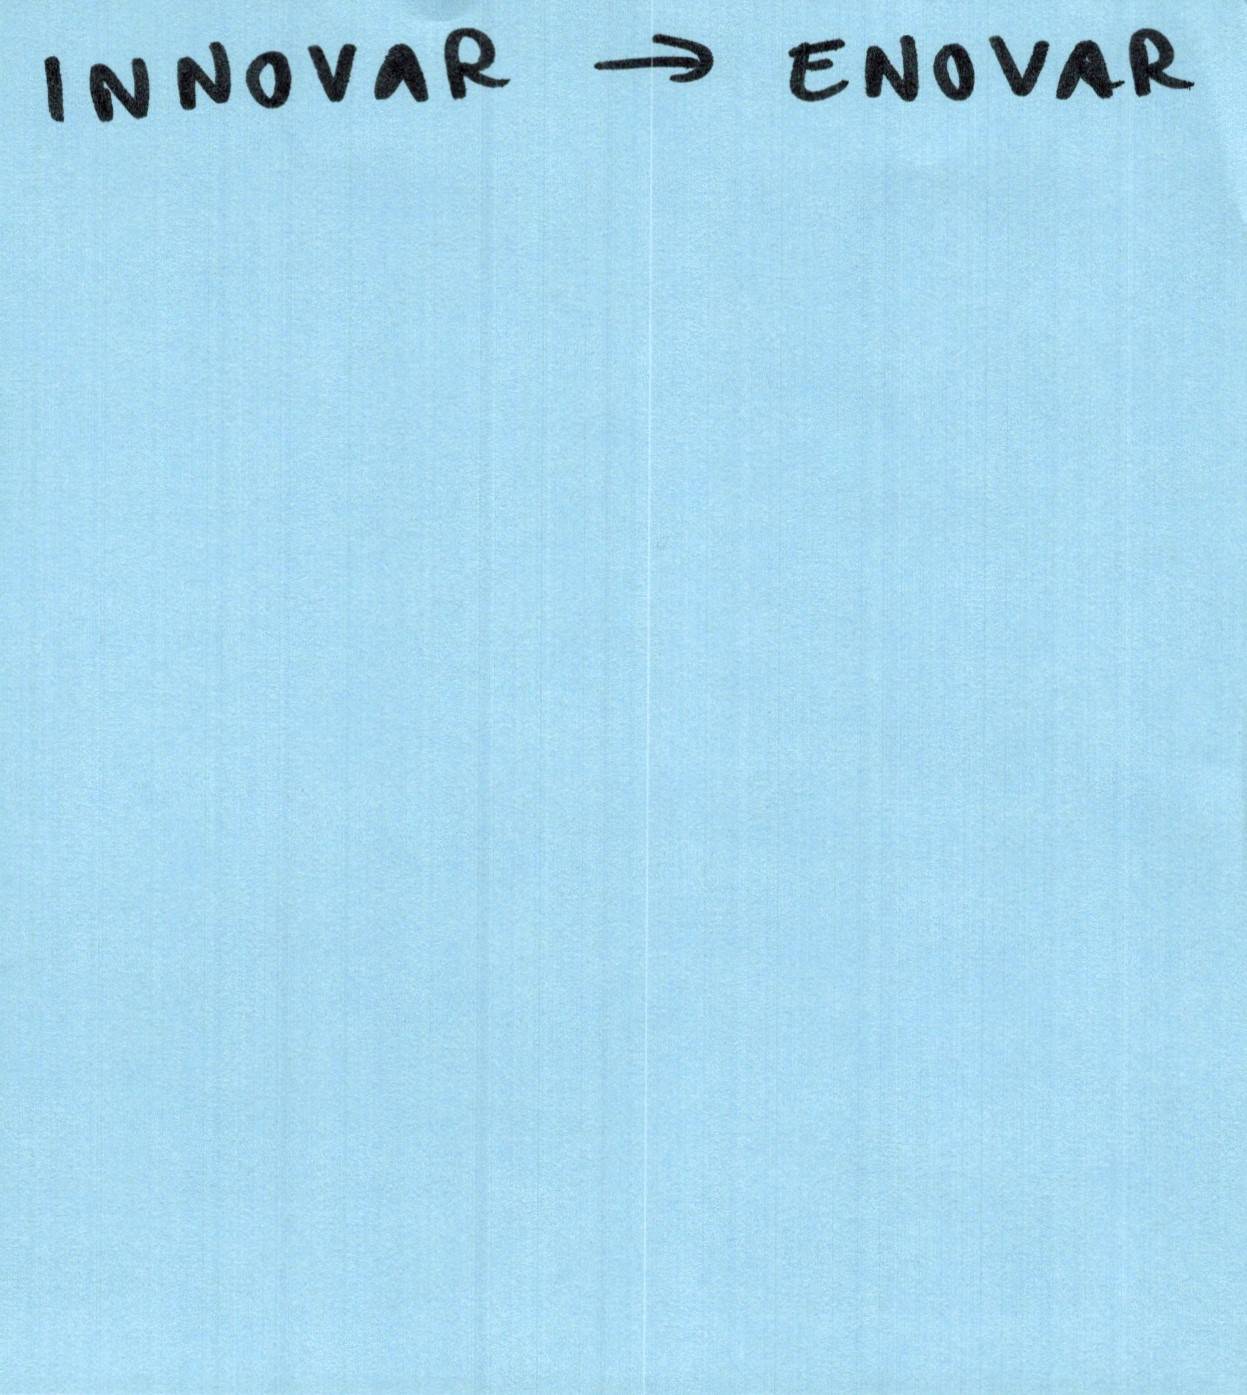 INNOVAR → ENOVAR